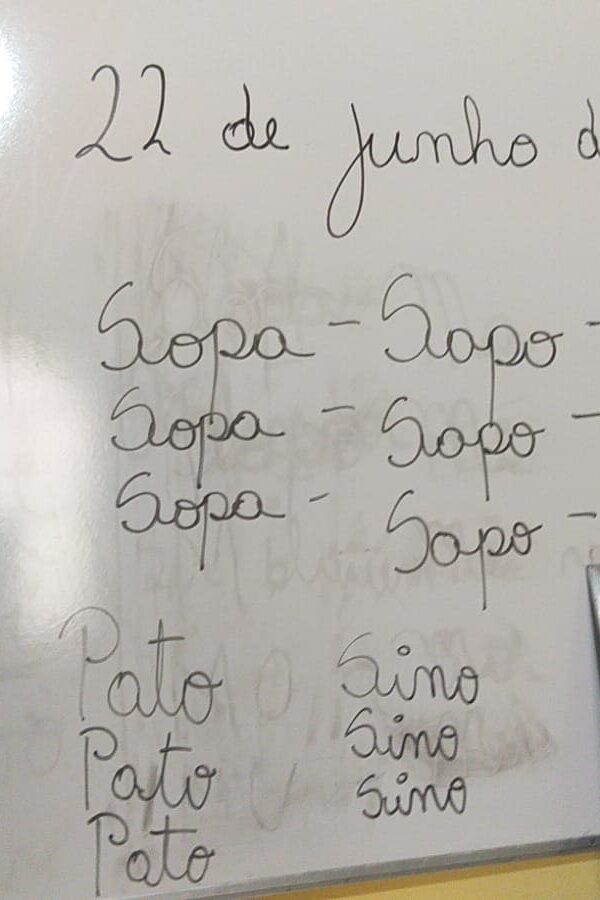 22 de junho d
Sopa - Sapo -
Sopa - Sapo -
Sopa - Sapo -
Pato Sino
Pato Sino
Pato Sino